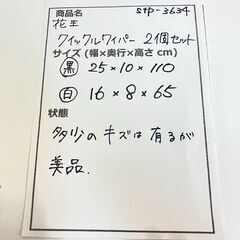 商品名 stp-3634
花王
クイックルワイパー 2個セット
サイズ (幅×奥行×高さ cm)
黒 25×10×110
白 16×8×65
状態
多少のキズは有るが
美品.